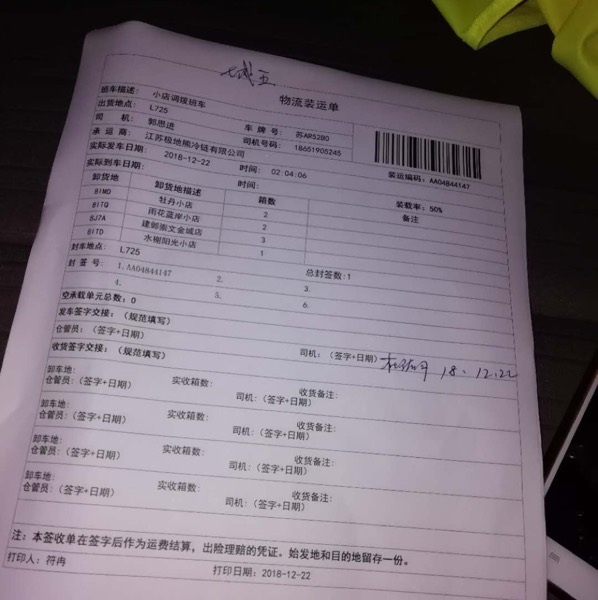 物流装运单
班车描述: 小店调拨班车
出货地点: L725
司 机: 郭恩进 车 牌 号: 苏AR52B0
承 运 商: 江苏极地熊冷链有限公司 司机号码: 18651905245
装运编码: AA04844147
实际发车日期: 2018-12-22 时间: 02:04:06
实际到车日期: 时间: 装载率: 50%
卸货地 卸货地描述 箱数 备注
8IMD 牡丹小店 2
8ITQ 雨花蓝岸小店 2
8J7A 建邺崇文金城店 3
8ITD 水榭阳光小店 1
封车地点: L725 总封签数:1
封 签 号: 1.AA04844147 2. 3.
4. 5. 6.
空承载单元总数: 0
发车签字交接: (规范填写)
仓管员: (签字+日期) 司机: (签字+日期) 18.12.22
收货签字交接: (规范填写)
卸车地: 实收箱数: 收货备注:
仓管员: (签字+日期) 司机: (签字+日期)
卸车地: 实收箱数: 收货备注:
仓管员: (签字+日期) 司机: (签字+日期)
卸车地: 实收箱数: 收货备注:
仓管员: (签字+日期) 司机: (签字+日期)
卸车地: 实收箱数: 收货备注:
仓管员: (签字+日期) 司机: (签字+日期)
注: 本签收单在签字后作为运费结算, 出险理赔的凭证。始发地和目的地留存一份。
打印人: 符冉 打印日期: 2018-12-22